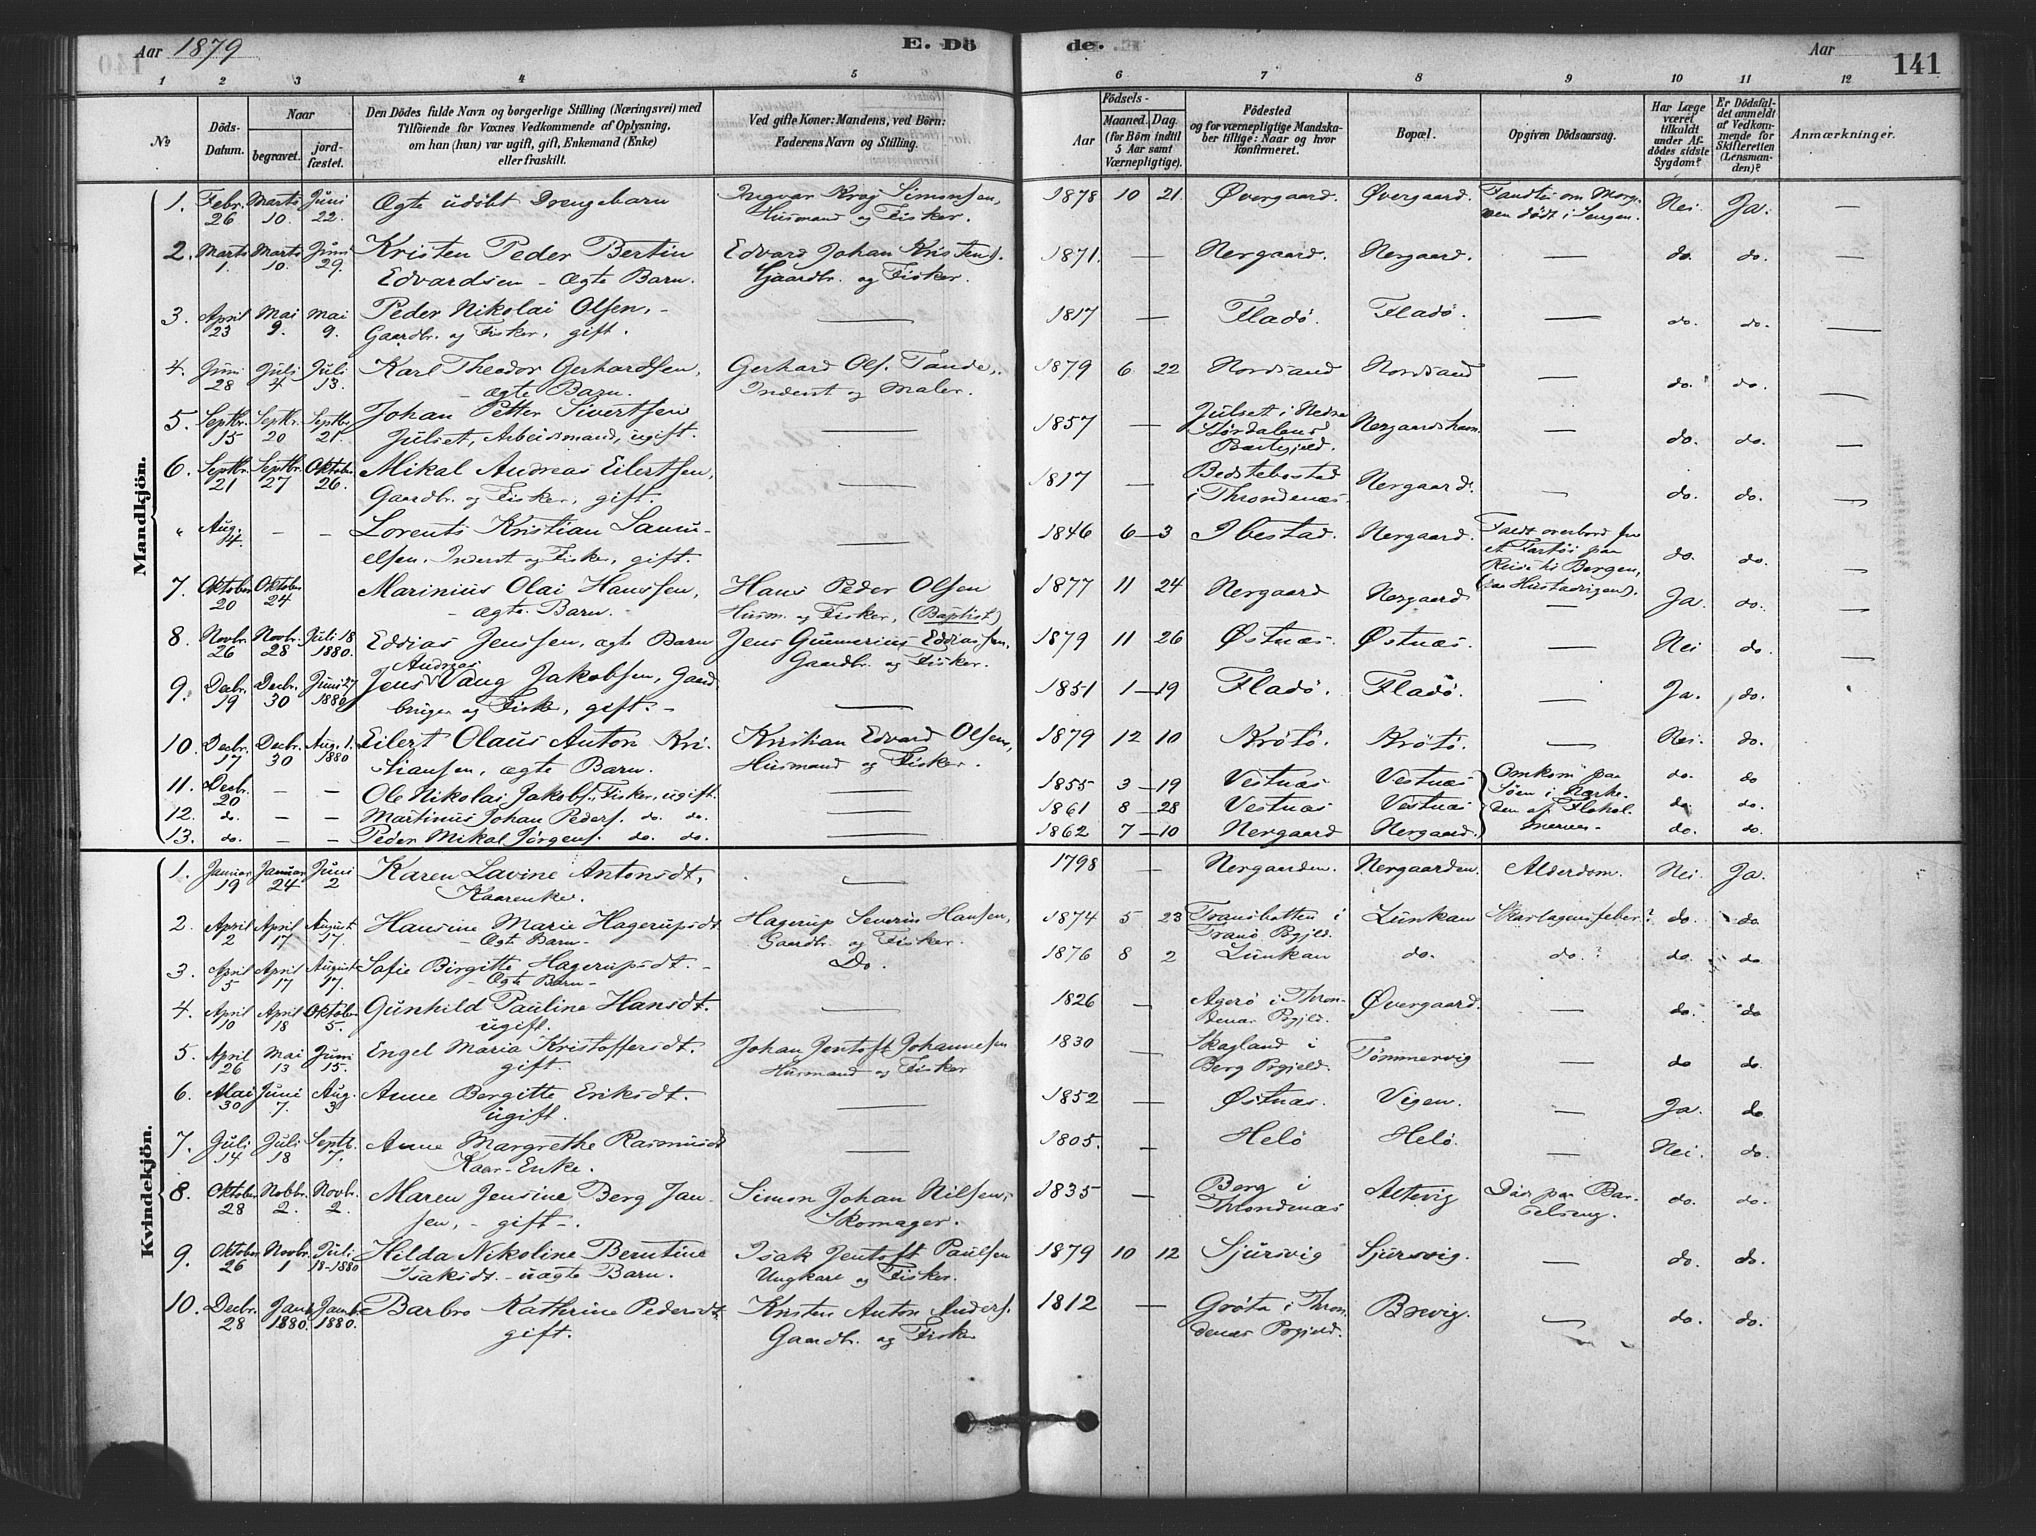 Aar 1879
E. Dö de.
Aar
141
1 2 3 4 5 6 7 8 9 10 11 12
No
Döds-Datum.
Naar
begravet.
jordfæstet.
Den Dödes fulde Navn og borgerlige Stilling (Næringsvei) med
Tilföiende for Voxnes Vedkommende af Oplysning,
om han (hun) var ugift, gift, Enkemand (Enke)
eller fraskilt.
Ved gifte Koner: Mandens, ved Börn:
Faderens Navn og Stilling.
Födsels-
Aar
Maaned. Dag.
(for Börn indtil
5 Aar samt
Værnepligtige).
Födested
og for værnepligtige Mandska-
ber tillige: Naar og hvor
konfirmeret.
Bopæl.
Opgiven Dödsaarsag.
Har Læge
været
tilkaldt
under Af-
dödes sidste
Sygdom?
Er Dödsfal-
det anmeldt
af Vedkom-
mende for
Skifteretten
(Lensman-
den)?
Anmærkninger.
Mandkjön.
1. Febr. 26 Marts 10. Juni 22. Ægte udöbt Drengebarn Ingvar Krøj Simonsen, Husmand og Fisker. 1878 10 21. Øvergaard. Øvergaard. Fandtes om Morgenen dödt i Sengen. Nei. Ja. —
2. Marts 1. Marts 10. Juni 29. Kristen Peder Bertin Edvardsen - Ægte Barn. Edvard Johan Kristens. Gaardbr. og Fisker. 1871. — Nergaard. Nergaard. — do. do. —
3. April 23 Mai 9. Mai 9. Peder Nikolai Olsen, - Gaardbr. og Fisker, gift. — 1817 — Fladö. Fladö. — do. do. —
4. Juni 28 Juli 4 Juli 13. Karl Theodor Gerhardsen, - ægte Barn. Gerhard Ols. Tande, Inderst og Maler. 1879 6 22 Nordsand Nordsand — do. do. —
5. Septbr. 15 Septbr. 20 Septbr. 21. Johan Petter Sivertsen Julset, Arbeidsmand, ugift. — 1857 — Julset i Nedre Størdalens Præstegjeld. Nergaardshavn — do. do. —
6. Septbr. 21 Septbr. 27 Oktober 26. Mikal Andreas Eilertsen, Gaardbr. og Fisker, gift. — 1817 — Bedstebostad i Throndenæs. Nergaard. — do. do. —
" Aug. 14. — — Lorents Kristian Samuelsen. Inderst og Fisker, gift. — 1846 6 - 3 Ibestad. Nergaard. Faldt overbord fra et Fartøi paa Reise til Bergen, (paa Hustadvigen). do. do. —
7. Oktober 20 Oktober 24 Marinius Olai Hanssen, - ægte Barn. Hans Peder Olsen Husm. og Fisker, (Baptist) 1877 11 24 Nergaard Nergaard — Ja. do. —
8. Novbr. 26 Novbr. 28 Juli 18 1880. Eddias Jenssen, ægte Barn Jens Gunnerius Eddiassen. Gaardbr. og Fisker. 1879 11 26 Østnæs. Østnæs. — Nei do. —
9. Decbr. 19 Decbr. 30 Juni 27 1880 Jens Andreas Vang Jakobsen, Gaardbruger og Fisker, gift. - — 1851 1 - 19 Fladö. Fladö. — Ja. do.
10. Decbr. 17 Decbr. 30 Aug. 1. 1880 Eilert Olaus Anton Kristiansen, ægte Barn. Kristian Edvard Olsen, Husmand og Fisker. 1879 12 10 Krötö. Krötö. — Nei. do.
11. Decbr. 20 — — Ole Nikolai Jakobs. Fisker, ugift. — 1855 3 - 19 Vestnæs Vestnæs Omkom paa Søen i Nærheden af Flakolmerne. do. do
12. do. — — Martinus Johan Peders. do. do. — 1861 8 - 28 Vestnæs Vestnæs do. do.
13. do. — — Peder Mikal Jørgens. do. do. — 1862 7 - 10 Nergaard Nergaard. do. do.
Kvindekjön.
1. Januar 19 Januar 24 Juni 2 Karen Lavine Antonsdt, Kaarenke. — 1798 — Nergaarden. Nergaarden. Alderdom. Nei. Ja.
2. April 2 April 17 August 17. Hansine Marie Hagerupsdt. - Ægt. Barn - Hagerup Severin Hansen, Gaardbr. og Fisker. 1874 5 23 Tranöbotten i Tranö Pgjeld. Lunkan Skarlagensfeber? do. do
3. April 5 April 17 August 17. Sofie Birgitte Hagerupsdt. - - Ægt. Barn - Do. 1876 8 2 Lunkan do. do. ? do. do
4. April 10 April 18 Oktober 5. Gunhild Pauline Hansdt. ugift. — 1826 — Agerö i Throndenæs Pgjeld. Øvergaard. — do. do
5. April 26 Mai 13 Juni 15. Engel Maria Kristoffersdt. gift. Johan Jentoft Johannesen Husmand og Fisker 1830 — Skagland i Berg Prgjeld. Tömmervig — do do
6. Mai 30 Juni 7. Aug. 3 Anne Bergitte Eriksdt. ugift. — 1852 — Østnæs. Vigen. — Ja. do
7. Juli 14 Juli 18 Septb. 7. Anne Margrethe Rasmusdt Kaar-Enke. — 1805. — Helö Helö. — Nei. do.
8. Oktober 28 Novbr. 2. Novbr. 2. Maren Jensine Berg Jansen, - gift -. Simon Johan Nilsen, Skomager. 1835 — Berg i Throndenæs Altevig Död paa Barselseng. do. do.
9. Oktober 26 Novbr. 1 Juli 18-1880 Hilda Nikoline Berntine Isaksdt. - uægte Barn. Isak Jentoft Paulsen Ungkarl og Fisker. 1879 10 12 Sjursvig Sjursvig. — do. do.
10. Decbr. 28 Janb. 1880. Janb. 1880. Barbro Katherine Pedersdt. gift. Kristen Anton Anders. Gaardbr. og Fisker 1812 — Gröta i Throndenæs Prgjeld. Brevig. — do. do.